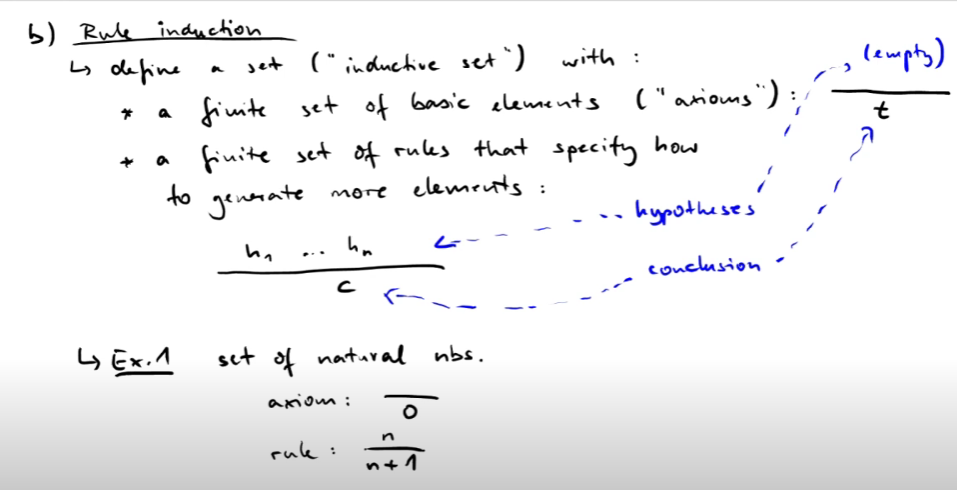 b) Rule induction
↳ define a set ("inductive set") with :
* a finite set of basic elements ("axioms") : (empty)
t
* a finite set of rules that specify how
to generate more elements :
hypotheses
h₁ ... hₙ
c
conclusion
↳ Ex.1 set of natural nbs.
axiom : 
0
rule : n
n+1